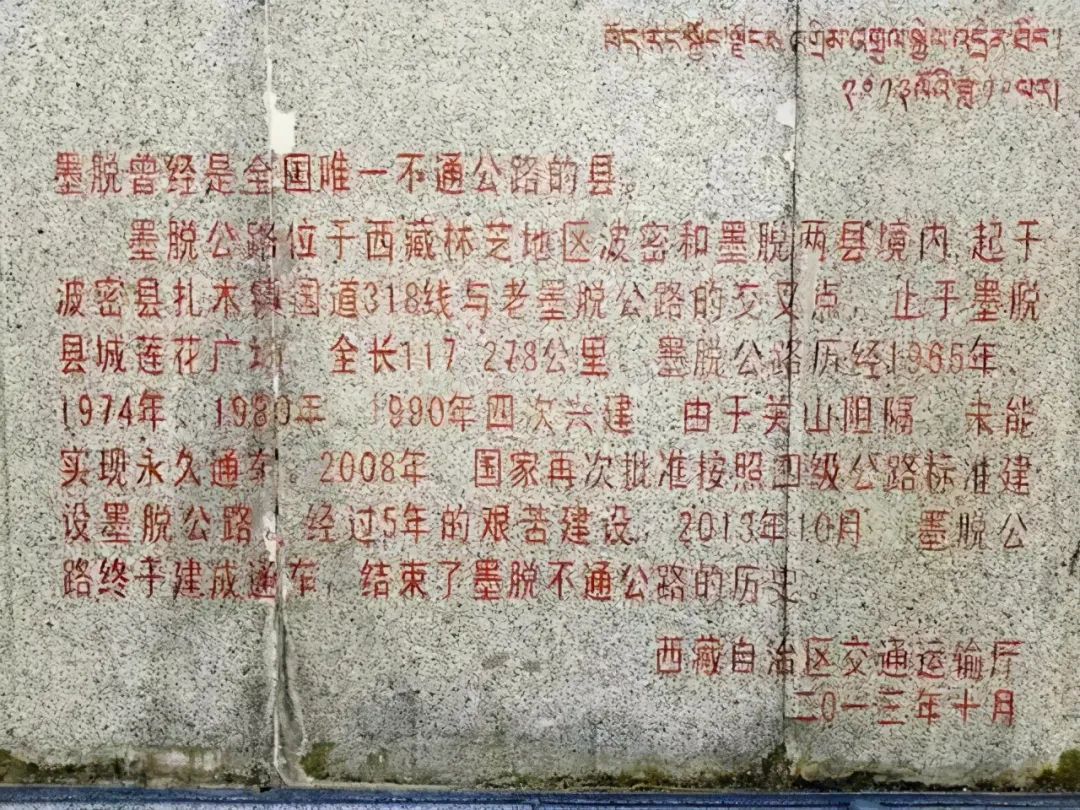 བོད་རང་སྐྱོང་ལྗོངས་འགྲིམ་འགྲུལ་སྐྱེལ་འདྲེན་ཐིང་།
༢༠༡༣ལོའི་ཟླ་༡༠པར།
墨脱曾经是全国唯一不通公路的县。
墨脱公路位于西藏林芝地区波密和墨脱两县境内,起于
波密县扎木镇国道318线与老墨脱公路的交叉点,止于墨脱
县城莲花广场 全长117 278公里。墨脱公路历经1965年、
1974年、1980年 1990年四次兴建 由于关山阻隔 未能
实现永久通车。2008年 国家再次批准按照四级公路标准建
设墨脱公路 经过5年的艰苦建设,2013年10月 墨脱公
路终于建成通车,结束了墨脱不通公路的历史。
西藏自治区交通运输厅
二0一三年十月